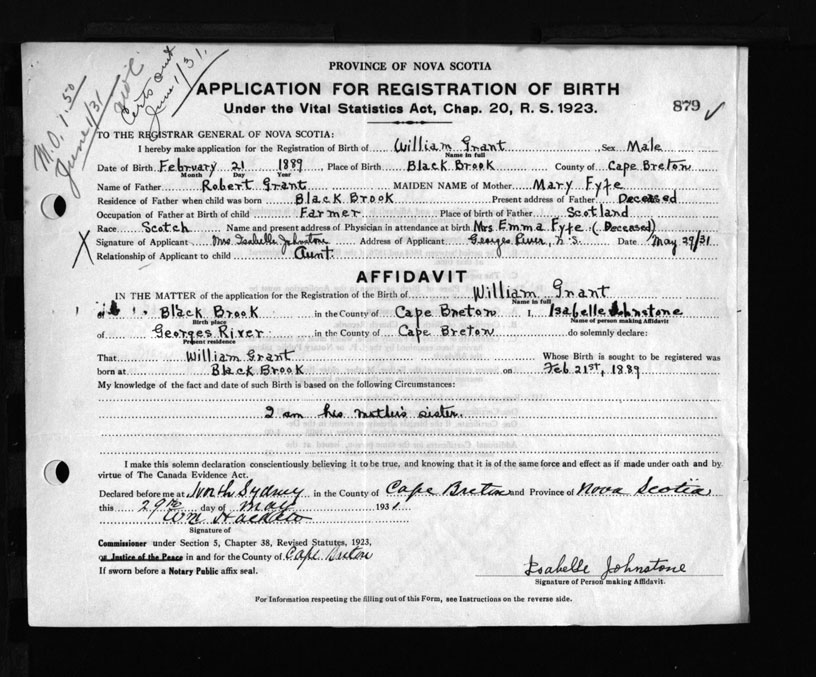 PROVINCE OF NOVA SCOTIA
APPLICATION FOR REGISTRATION OF BIRTH
Under the Vital Statistics Act, Chap. 20, R. S. 1923.
879
M.O. 1.50
June 1/31
Certs out
June 1/31.
TO THE REGISTRAR GENERAL OF NOVA SCOTIA:
I hereby make application for the Registration of Birth of William Grant Sex Male
Name in full
Date of Birth February 21 1889 Place of Birth Black Brook County of Cape Breton
Month Day Year
Name of Father Robert Grant MAIDEN NAME of Mother Mary Fyfe
Residence of Father when child was born Black Brook Present address of Father Deceased
Occupation of Father at Birth of child Farmer Place of birth of Father Scotland
Race Scotch Name and present address of Physician in attendance at birth Mrs. Emma Fyfe (Deceased)
X Signature of Applicant Mrs. Isabelle Johnstone Address of Applicant Georges River, N.S. Date May 29/31
Relationship of Applicant to child Aunt.
AFFIDAVIT
IN THE MATTER of the application for the Registration of the Birth of William Grant
Name in full
of Black Brook in the County of Cape Breton I, Isabelle Johnstone
Birth place Name of person making Affidavit
of Georges River in the County of Cape Breton do solemnly declare:
Present residence
That William Grant Whose Birth is sought to be registered was
born at Black Brook on Feb 21st, 1889
My knowledge of the fact and date of such Birth is based on the following Circumstances:
I am his mother's sister.
I make this solemn declaration conscientiously believing it to be true, and knowing that it is of the same force and effect as if made under oath and by
virtue of The Canada Evidence Act.
Declared before me at North Sydney in the County of Cape Breton and Province of Nova Scotia
this 29th day of May 1931
Wm
Signature of
Commissioner under Section 5, Chapter 38, Revised Statutes, 1923,
or Justice of the Peace in and for the County of Cape Breton
If sworn before a Notary Public affix seal.
Isabelle Johnstone
Signature of Person making Affidavit.
For Information respecting the filling out of this Form, see Instructions on the reverse side.